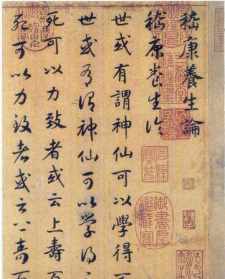 嵇康養生論
嵇康養生論
世或有謂神仙可以學得不
世或有謂神仙可以学得
死可以力致者或云上壽百
死可以力致者或云上壽百